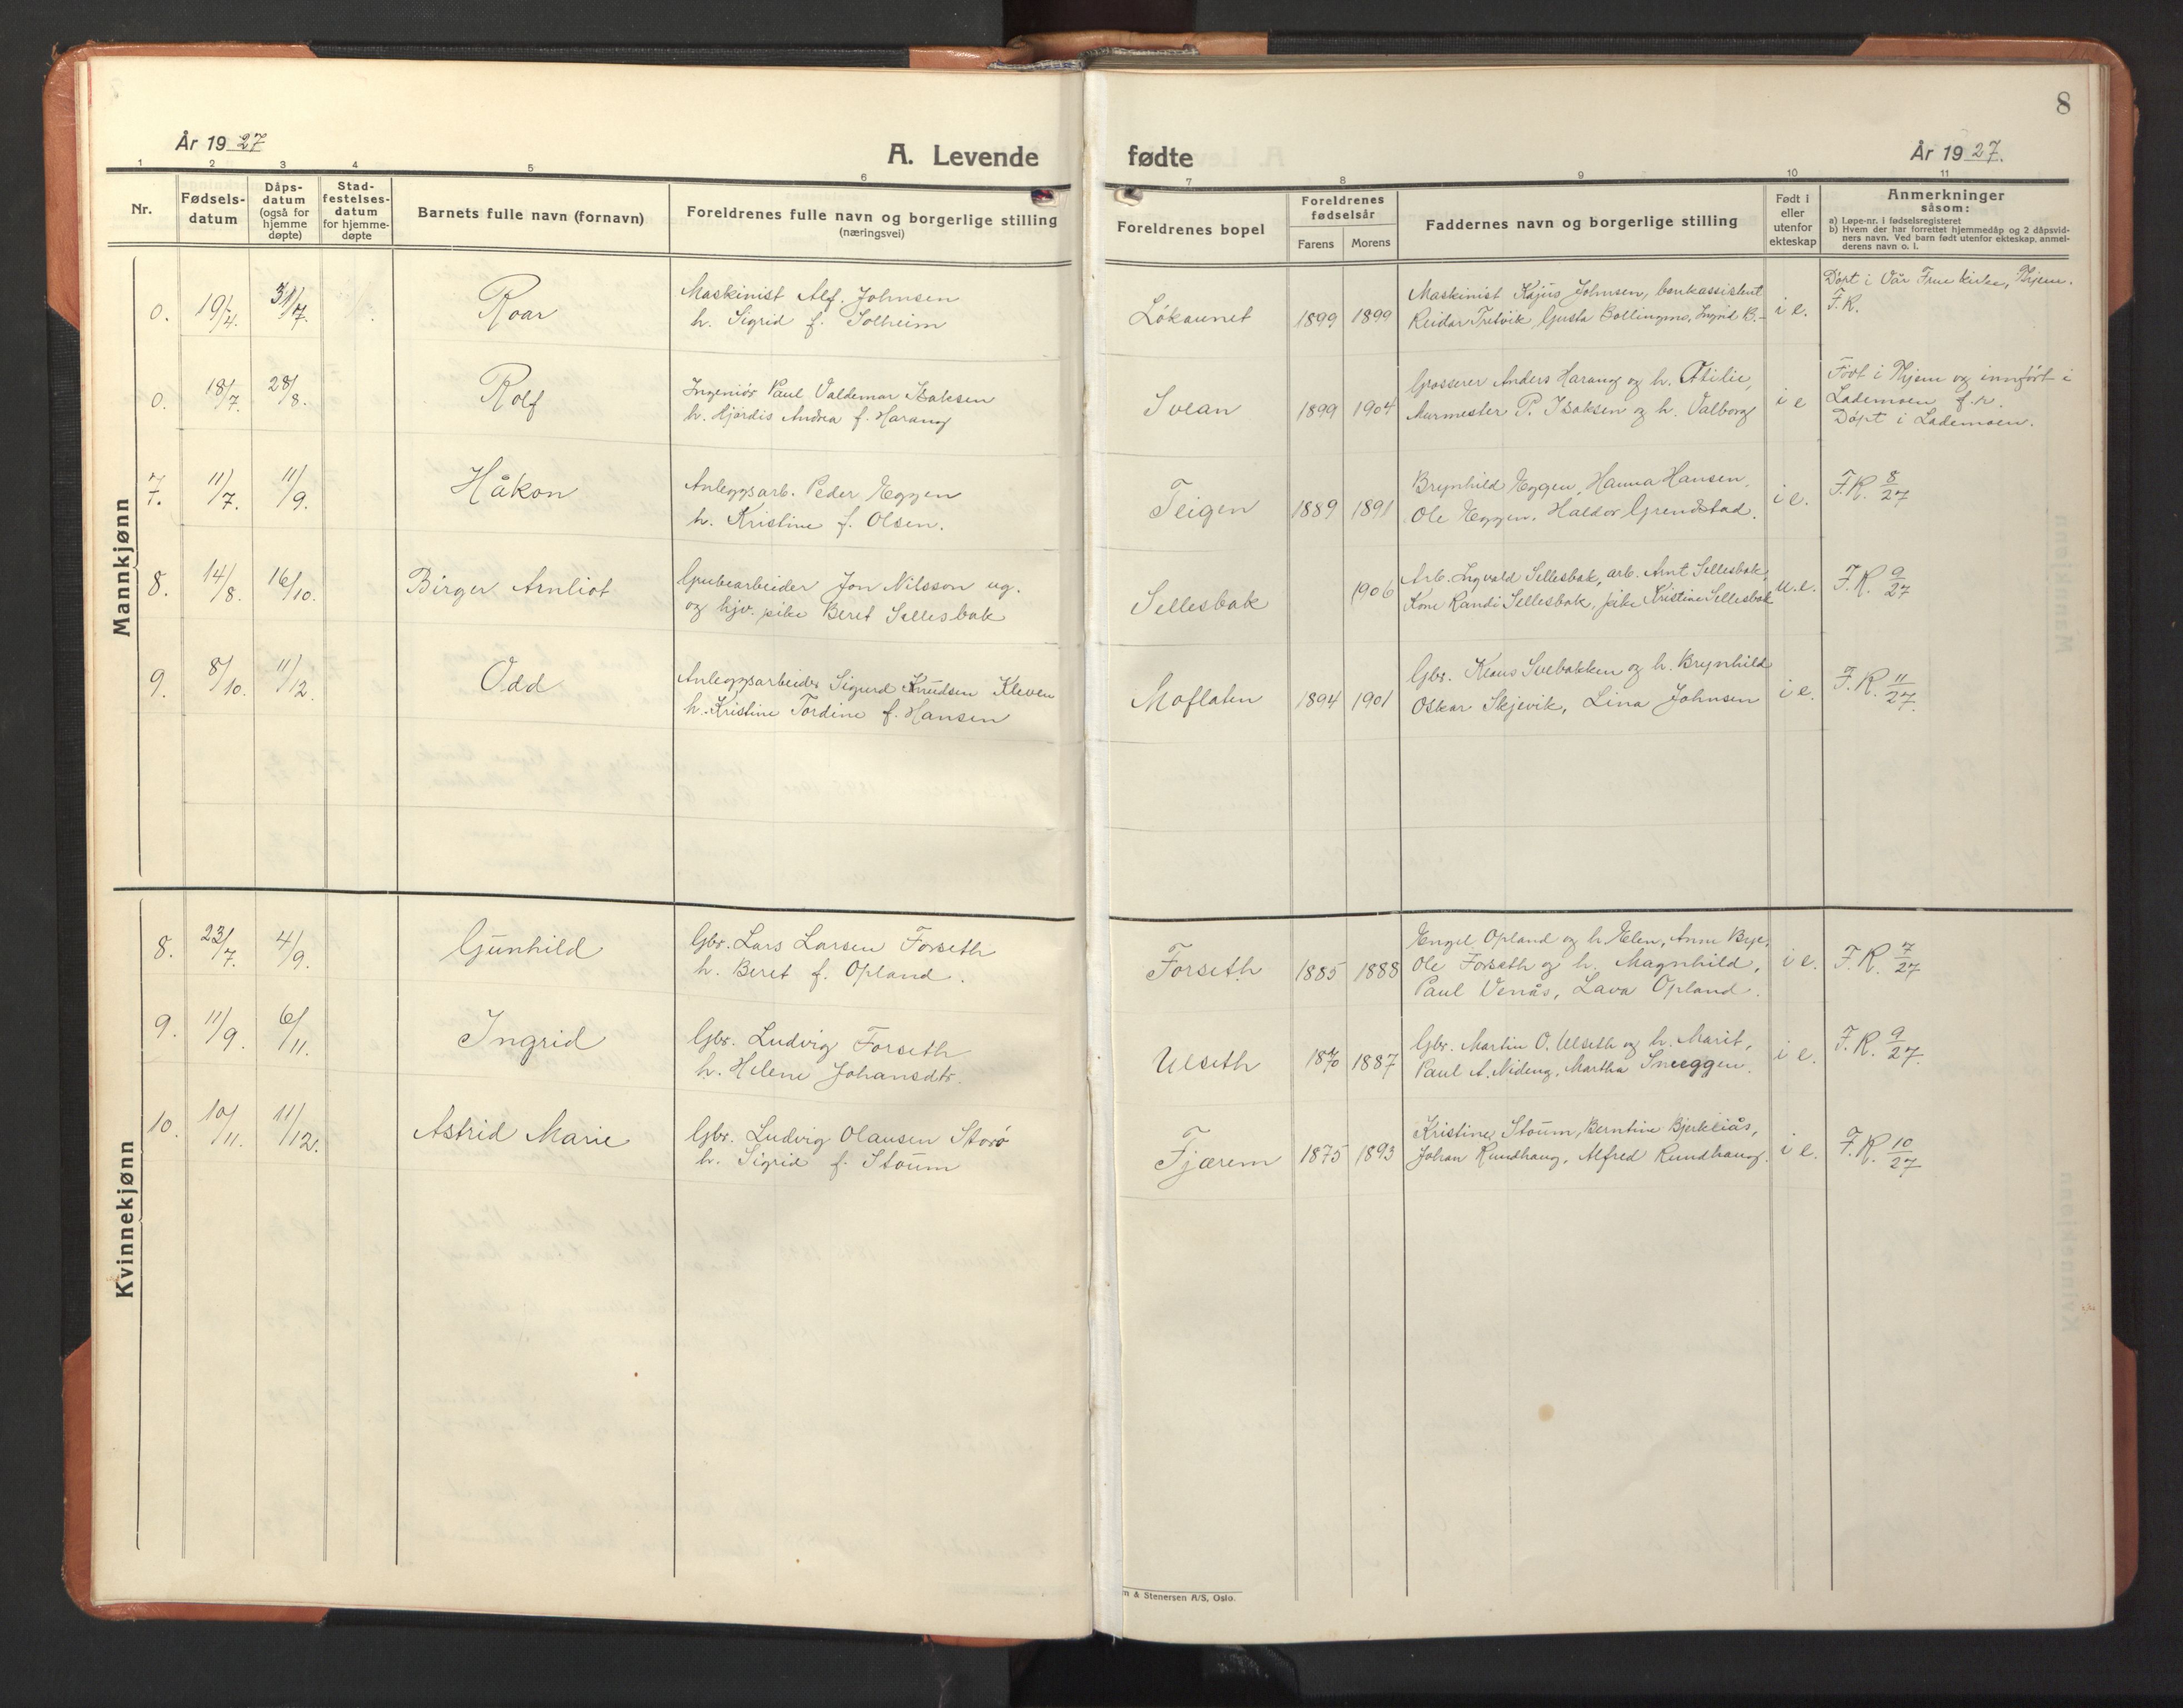 8
År 1927
A. Levende fødte
År 1927.
1 2 3 4 5 6 7 8 9 10 11
Nr.
Fødsels-
datum
Dåps-
datum
(også for
hjemme
døpte)
Stad-
festelses-
datum
for hjemme-
døpte
Barnets fulle navn (fornavn)
Foreldrenes fulle navn og borgerlige stilling
(næringsvei)
Foreldrenes bopel
Foreldrenes
fødselsår
Farens Morens
Faddernes navn og borgerlige stilling
Født i
eller
utenfor
ekteskap
Anmerkninger
såsom:
a) Løpe-nr. i fødselsregisteret
b) Hvem der har forrettet hjemmedåp og 2 dåpsvid-
ners navn. Ved barn født utenfor ekteskap, anmel-
derens navn o. l.
Mannkjønn
0. 19/4. 31/7. Roar
Maskinist Alf. Johnsen
h. Sigrid f. Solheim
Løkaunet 1899 1899
Maskinist Kajus Johnsen, bankassistent
Reidar Tretvik, Gusta Bollingmo, Ingrid B.-
i e.
Døpt i Vår Frue kirke, Thjem.
F.R.
0. 18/7. 28/8. Rolf
Ingeniør Paul Valdemar Isaksen
h. Hjørdis Andrea f. Harang
Svean 1899 1904
Grosserer Anders Harang og h. Otilie,
Murmester P. Isaksen og h. Valborg
i e
Født i Thjem og innført i
Lademoen f.r.
Døpt i Lademoen.
7. 11/7. 11/9. Håkon
Anleggsarb. Peder Eggen
h. Kristine f. Olsen.
Teigen 1889 1891
Brynhild Eggen, Hanna Hansen,
Ole Eggen, Haldor Grendstad.
i e.
F.R. 8/27
8. 14/8. 16/10. Birger Arnliot
Grubearbeider Jon Nilsson ug.
og hjv. pike Beret Sellesbak
Sellesbak 1906
Arb. Ingvald Sellesbak, arb. Arnt Sellesbak,
Kone Randi Sellesbak, pike Kristine Sellesbak
u.e.
F.R. 9/27
9. 8/10. 11/12. Odd
Anleggsarbeider Sigurd Knudsen Kleven
h. Kristine Tordine f. Hansen
Moflaten 1894 1901
Gbr. Klaus Svebakken og h. Brynhild
Oskar Skjevik, Lina Johnsen
i e.
F.R. 11/27.
Kvinnekjønn
8. 23/7. 4/9. Gunhild
Gbr. Lars Larsen Forseth
h. Beret f. Opland.
Forseth 1885 1888
Engel Opland og h. Elen, Anne Bye,
Ole Forseth og h. Magnhild,
Paul Venås, Lava Opland.
i e.
F.R. 7/27
9. 11/9. 6/11. Ingrid
Gbr. Ludvig Forseth
h. Helene Johansdtr.
Ulseth 1870 1887
Gbr. Martin O. Ulseth og h. Marit,
Paul A. Nideng, Martha Sneeggen.
i e.
F.R. 9/27.
10. 10/11. 11/12. Astrid Marie
Gbr. Ludvig Olausen Storø
h. Sigrid f. Stoum
Fjærem 1875 1893
Kristine Stoum, Berntine Bjerkeiås,
Johan Rundhaug, Alfred Rundhaug.
i e.
F.R. 10/27
m & Stenersen A/S, Oslo.